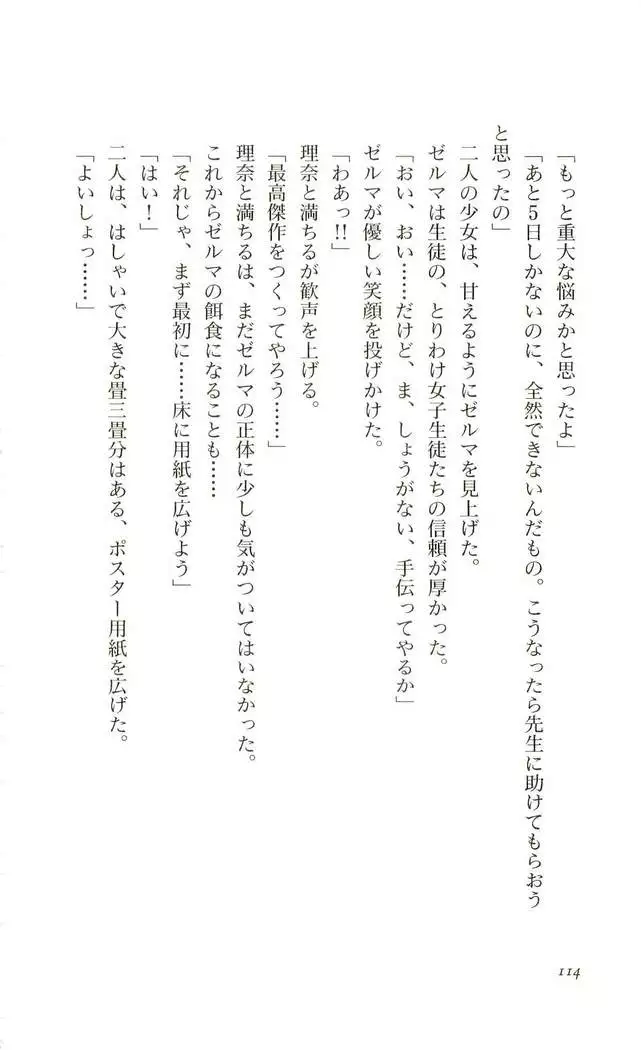 「もっと重大な悩みかと思ったよ」
「あと5日しかないのに、全然できないんだもの。こうなったら先生に助けてもらおう
と思ったの」
二人の少女は、甘えるようにゼルマを見上げた。
ゼルマは生徒の、とりわけ女子生徒たちの信頼が厚かった。
「おい、おい……だけど、ま、しょうがない、手伝ってやるか」
ゼルマが優しい笑顔を投げかけた。
「わあっ!!」
理奈と満ちるが歓声を上げる。
「最高傑作をつくってやろう……」
理奈と満ちるは、まだゼルマの正体に少しも気がついてはいなかった。
これからゼルマの餌食になることも……
「それじゃ、まず最初に……床に用紙を広げよう」
「はい!」
二人は、はしゃいで大きな畳三畳分はある、ポスター用紙を広げた。
「よいしょっ……」
114